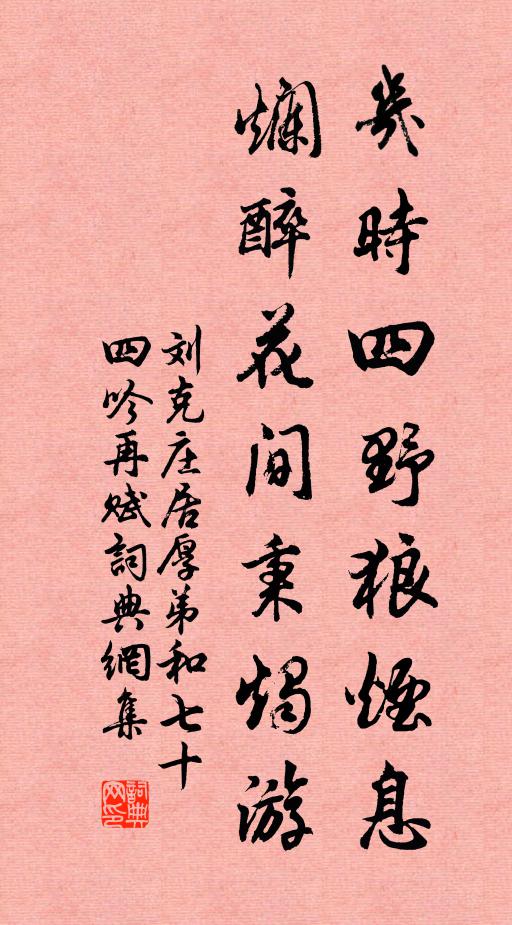 幾時四野狼煙息
爛醉花间秉燭游
刘克庄居厚弟和七十
四吟再赋詞典網集
詞典
网印